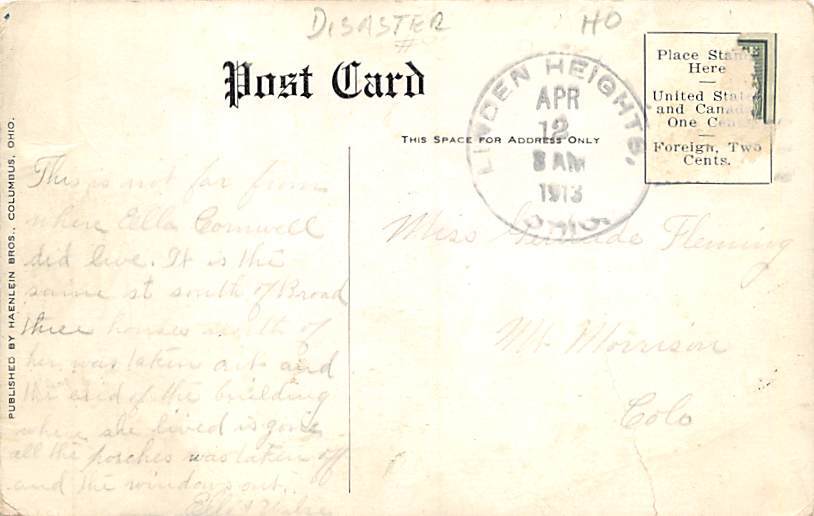 DISASTER
#
HO
Post Card
THIS SPACE FOR ADDRESS ONLY
LINDEN HEIGHTS,
APR
12
8 AM
1913
OHIO
Place Sta
Here
United Stat
and Canad
One Ce
Foreign, Two
Cents.
PUBLISHED BY HAENLEIN BROS., COLUMBUS, OHIO.
This is not far from
where Ella Cornwell
did live. It is the
same st south of Broad
three houses north of
her was taken out and
the end of the building
where she lived is gone
all the porches was taken off
and the windows out.
Miss Gertrude Fleming
Mt Morrison
Colo